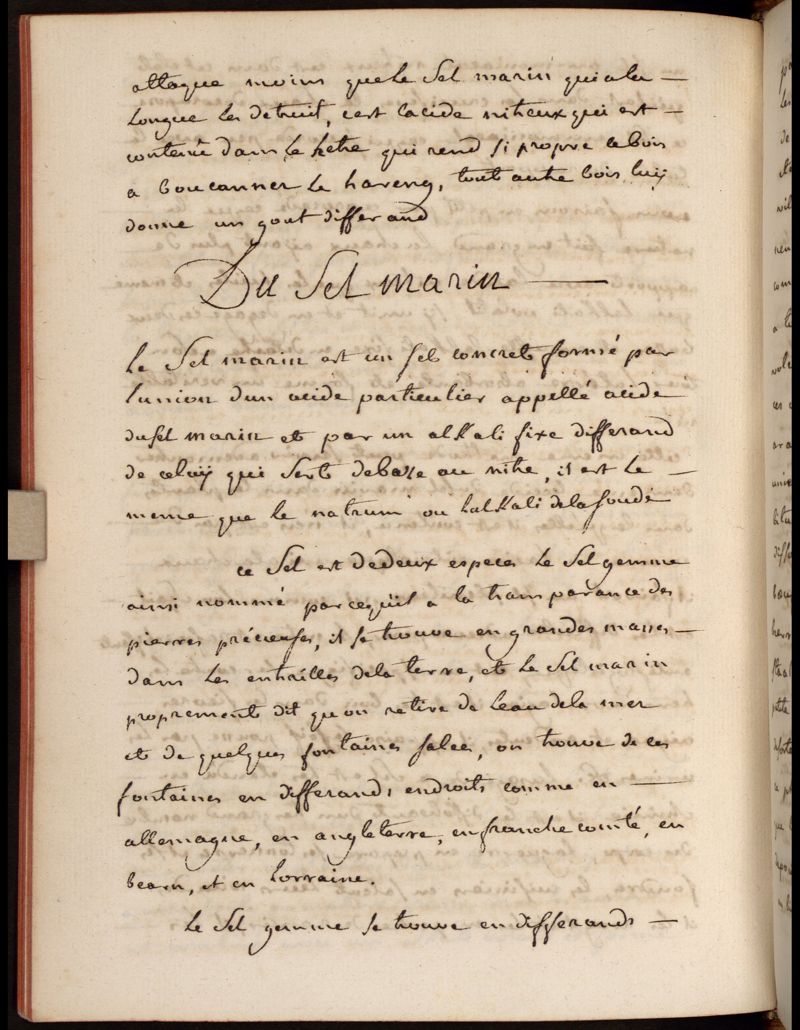 attaque moins que le Sel marin qui a la —
Longue Les detruit, cest lacide nitreux qui est —
contenu dans le hetre qui rend si propre ce bois
a boucanner le hareng, tout autre bois luij
donne un gout differand
Du Sel marin —
Le Sel marin est un sel concret formé par
lunion dun acide particulier appellé acide
du sel marin et par un alkali fixe differand
de celuij qui Sert de base au nitre, il est Le —
meme que le natrum ou Lalkali de la Soude
ce Sel est de deux especes Le Sel gemme
ainsi nommé parcequil a la transparance des
pierres précieuses, il se trouve en grandes masses —
dans Les entrailles dela terre, et Le Sel marin
proprement dit quon retire de Leau dela mer
et de quelques fontaines salées, on trouve de ces
fontaines en differands endroits comme en —
allemagne, en angleterre, en franche comté, en
bearn, et en Lorraine.
Le Sel gemme se trouve en differands —